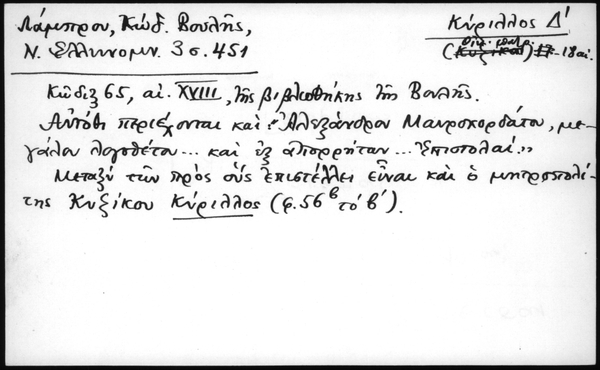 Λάμπρου, Κώδ. Βουλῆς,
Ν. Ἑλληνομν. 3 σ. 451
Κύριλλος Δ'
(Κυζίκου) οἰκ. πατρ. 17-18 αἰ.
Κῶδιξ 65, αἰ. XVIII, τῆς βιβλιοθήκης τῆς Βουλῆς.
Αὐτόθι περιέχονται καὶ "Ἀλεξάνδρου Μαυροκορδάτου, με-
γάλου λογοθέτου... καὶ ἐξ ἀπορρήτων... Ἐπιστολαί."
Μεταξὺ τῶν πρὸς οὓς ἐπιστέλλει εἶναι καὶ ὁ μητροπολί-
της Κυζίκου Κύριλλος (φ. 56β τὸ β').